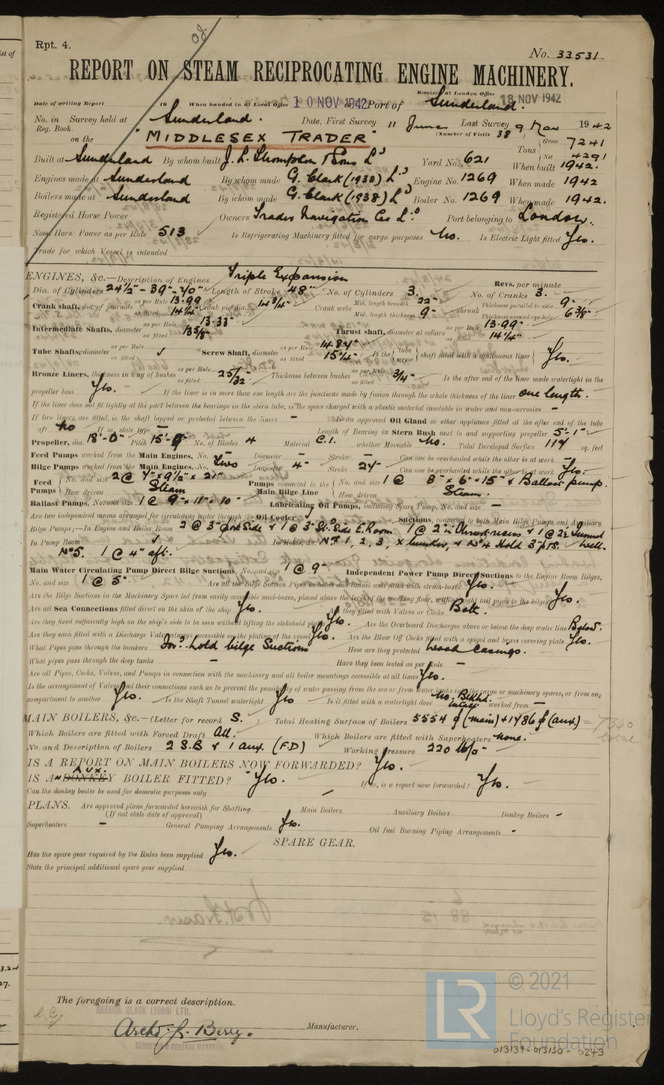 Rpt. 4.
No. 33531
REPORT ON STEAM RECIPROCATING ENGINE MACHINERY.
Received at London Office 18 NOV 1942
Date of writing Report 19 When handed in at Local Office 10 NOV 1942 Port of Sunderland.
No. in Reg. Book Survey held at Sunderland. Date, First Survey 11 June Last Survey 9 Nov 1942
(Number of Visits 38)
on the "MIDDLESEX TRADER" Tons Gross 7241 Net 4291
Built at Sunderland By whom built J. L. Thompson & Sons Ld Yard No. 621 When built 1942.
Engines made at Sunderland By whom made G. Clark (1938) Ld Engine No. 1269 When made 1942
Boilers made at Sunderland By whom made G. Clark (1938) Ld Boiler No. 1269 When made 1942.
Registered Horse Power Owners Trader Navigation Co Ld. Port belonging to London.
Nom. Horse Power as per Rule 513 Is Refrigerating Machinery fitted for cargo purposes No. Is Electric Light fitted Yes.
Trade for which Vessel is intended
ENGINES, &c.—Description of Engines Triple Expansion
Dia. of Cylinders 24½"-39"-70" Length of Stroke 48" No. of Cylinders 3. No. of Cranks 3.
Revs. per minute
Crank shaft, dia. of journals as per Rule 13.99 as fitted 14¼" Crank pin dia. 14¾" Crank webs Mid. length breadth 22" Mid. length thickness 9" Thickness parallel to axis 9" Thickness around eye-hole 6⅜"
Intermediate Shafts, diameter as per Rule 13.33 as fitted 13⅝" Thrust shaft, diameter at collars as per Rule 13.99 as fitted 14¼"
Tube Shafts, diameter as per Rule as fitted Screw Shaft, diameter as per Rule 14.84 as fitted 15¼" Is the Tube Screw shaft fitted with a continuous liner Yes.
Bronze Liners, thickness in way of bushes as per Rule as fitted 25/32" Thickness between bushes as per Rule as fitted 3/4" Is the after end of the liner made watertight in the
propeller boss Yes. If the liner is in more than one length are the junctions made by fusion through the whole thickness of the liner one length.
If the liner does not fit tightly at the part between the bearings in the stern tube, is the space charged with a plastic material insoluble in water and non-corrosive -
If two liners are fitted, is the shaft lapped or protected between the liners - Is an approved Oil Gland or other appliance fitted at the after end of the tube
shaft No If so, state type Length of Bearing in Stern Bush next to and supporting propeller 5'-1"
Propeller, dia. 18'-0" Pitch 15'-9" No. of Blades 4 Material C.I. whether Moveable No. Total Developed Surface 114 sq. feet
Feed Pumps worked from the Main Engines, No. - Diameter - Stroke - Can one be overhauled while the other is at work -
Bilge Pumps worked from the Main Engines, No. Two Diameter 4" Stroke 24" Can one be overhauled while the other is at work Yes.
Feed Pumps No. and size 2 @ 7" x 9½" x 21" How driven Steam Pumps connected to the Main Bilge Line No. and size 1 @ 8" x 6" x 15" & Ballast pump. How driven Steam.
Ballast Pumps, No. and size 1 @ 9" x 11" x 10" Lubricating Oil Pumps, including Spare Pump, No. and size -
Are two independent means arranged for circulating water through the Oil Cooler Suctions, connected to both Main Bilge Pumps and Auxiliary
Bilge Pumps;—In Engine and Boiler Room
In Pump Room In Holds, &c.
No 5. 1 @ 4" aft.
Main Water Circulating Pump Direct Bilge Suctions, No. and size 1 @ 9" Independent Power Pump Direct Suctions to the Engine Room Bilges,
No. and size 1 @ 5" Are all the Bilge Suction Pipes in Holds and Tunnel well fitted with strum-boxes Yes.
Are the Bilge Suctions in the Machinery Space led from easily accessible mud-boxes, placed above the level of the working floor, with straight tail pipes to the bilges Yes.
Are all Sea Connections fitted direct on the skin of the ship Yes. Are they fitted with Valves or Cocks Both.
Are they fixed sufficiently high on the ship's side to be seen without lifting the stokehold plates Yes. Are the Overboard Discharges above or below the deep water line Below.
Are they each fitted with a Discharge Valve always accessible on the plating of the vessel Yes. Are the Blow Off Cocks fitted with a spigot and brass covering plate Yes.
What Pipes pass through the bunkers For: hold bilge suctions How are they protected Wood casings.
What pipes pass through the deep tanks - Have they been tested as per Rule -
Are all Pipes, Cocks, Valves, and Pumps in connection with the machinery and all boiler mountings accessible at all times Yes.
Is the arrangement of Valves and their connections such as to prevent the possibility of water passing from the sea or from water ballast tanks into the cargo or machinery spaces, or from one
compartment to another Yes. Is the Shaft Tunnel watertight Yes Is it fitted with a watertight door worked from -
MAIN BOILERS, &c.—(Letter for record S.) Total Heating Surface of Boilers 5554 ф (main) + 1786 ф (aux.) = 7340 total
Which Boilers are fitted with Forced Draft All. Which Boilers are fitted with Superheaters None.
No. and Description of Boilers 2 S.B & 1 Aux. (F.D) Working Pressure 220 lb/o"
IS A REPORT ON MAIN BOILERS NOW FORWARDED? Yes.
IS A DONKEY AUX. BOILER FITTED? Yes. If so, is a report now forwarded? Yes.
Can the donkey boiler be used for domestic purposes only -
PLANS. Are approved plans forwarded herewith for Shafting Main Boilers Auxiliary Boilers Donkey Boilers -
(If not state date of approval)
Superheaters - General Pumping Arrangements Yes. Oil fuel Burning Piping Arrangements -
SPARE GEAR.
Has the spare gear required by the Rules been supplied Yes.
State the principal additional spare gear supplied
The foregoing is a correct description.
GEORGE CLARK (1938) LTD.
Archd. J. Berry. Manufacturer.
LR
© 2021
Lloyd's Register
Foundation
013139-013150-0243